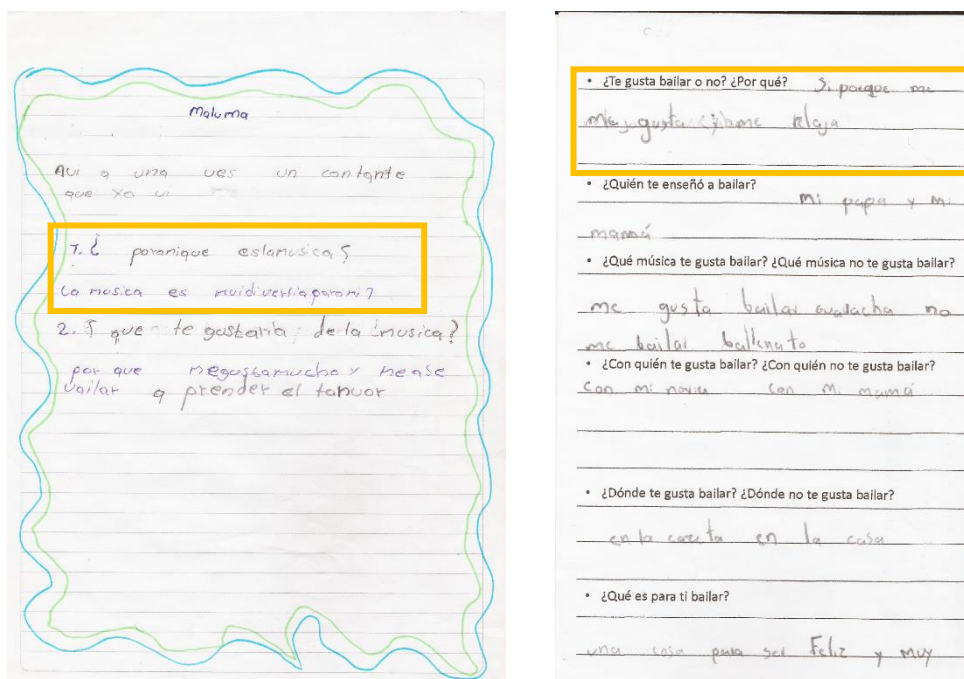 Maluma
Avi a una ves un contante
que yo vi
1.¿ paramique eslamusica?
La mosica es muidivertiaparami?
2. I que te gustaria de la musica?
por que megustamucho y mease
vailar a prender el tanvor
• ¿Te gusta bailar o no? ¿Por qué? Si porque me
me gusta y me relaja
• ¿Quién te enseñó a bailar?
mi papa y mi
mamá
• ¿Qué música te gusta bailar? ¿Qué música no te gusta bailar?
me gusta bailar no
me bailar ballenato
• ¿Con quién te gusta bailar? ¿Con quién no te gusta bailar?
con mi novia con mi mamá
• ¿Dónde te gusta bailar? ¿Dónde no te gusta bailar?
en la en la casa
• ¿Qué es para ti bailar?
una cosa para ser Feliz y muy